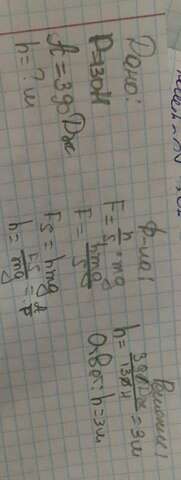 Дано:
P=30Н
A=390Дж
h=? м
Ф-ла:
F=h/S·mg
F=hmg/S
FS=hmg
h=FS/mg=A/P
Решение:
h=390Дж/130Н=3м
Ответ: h=3м